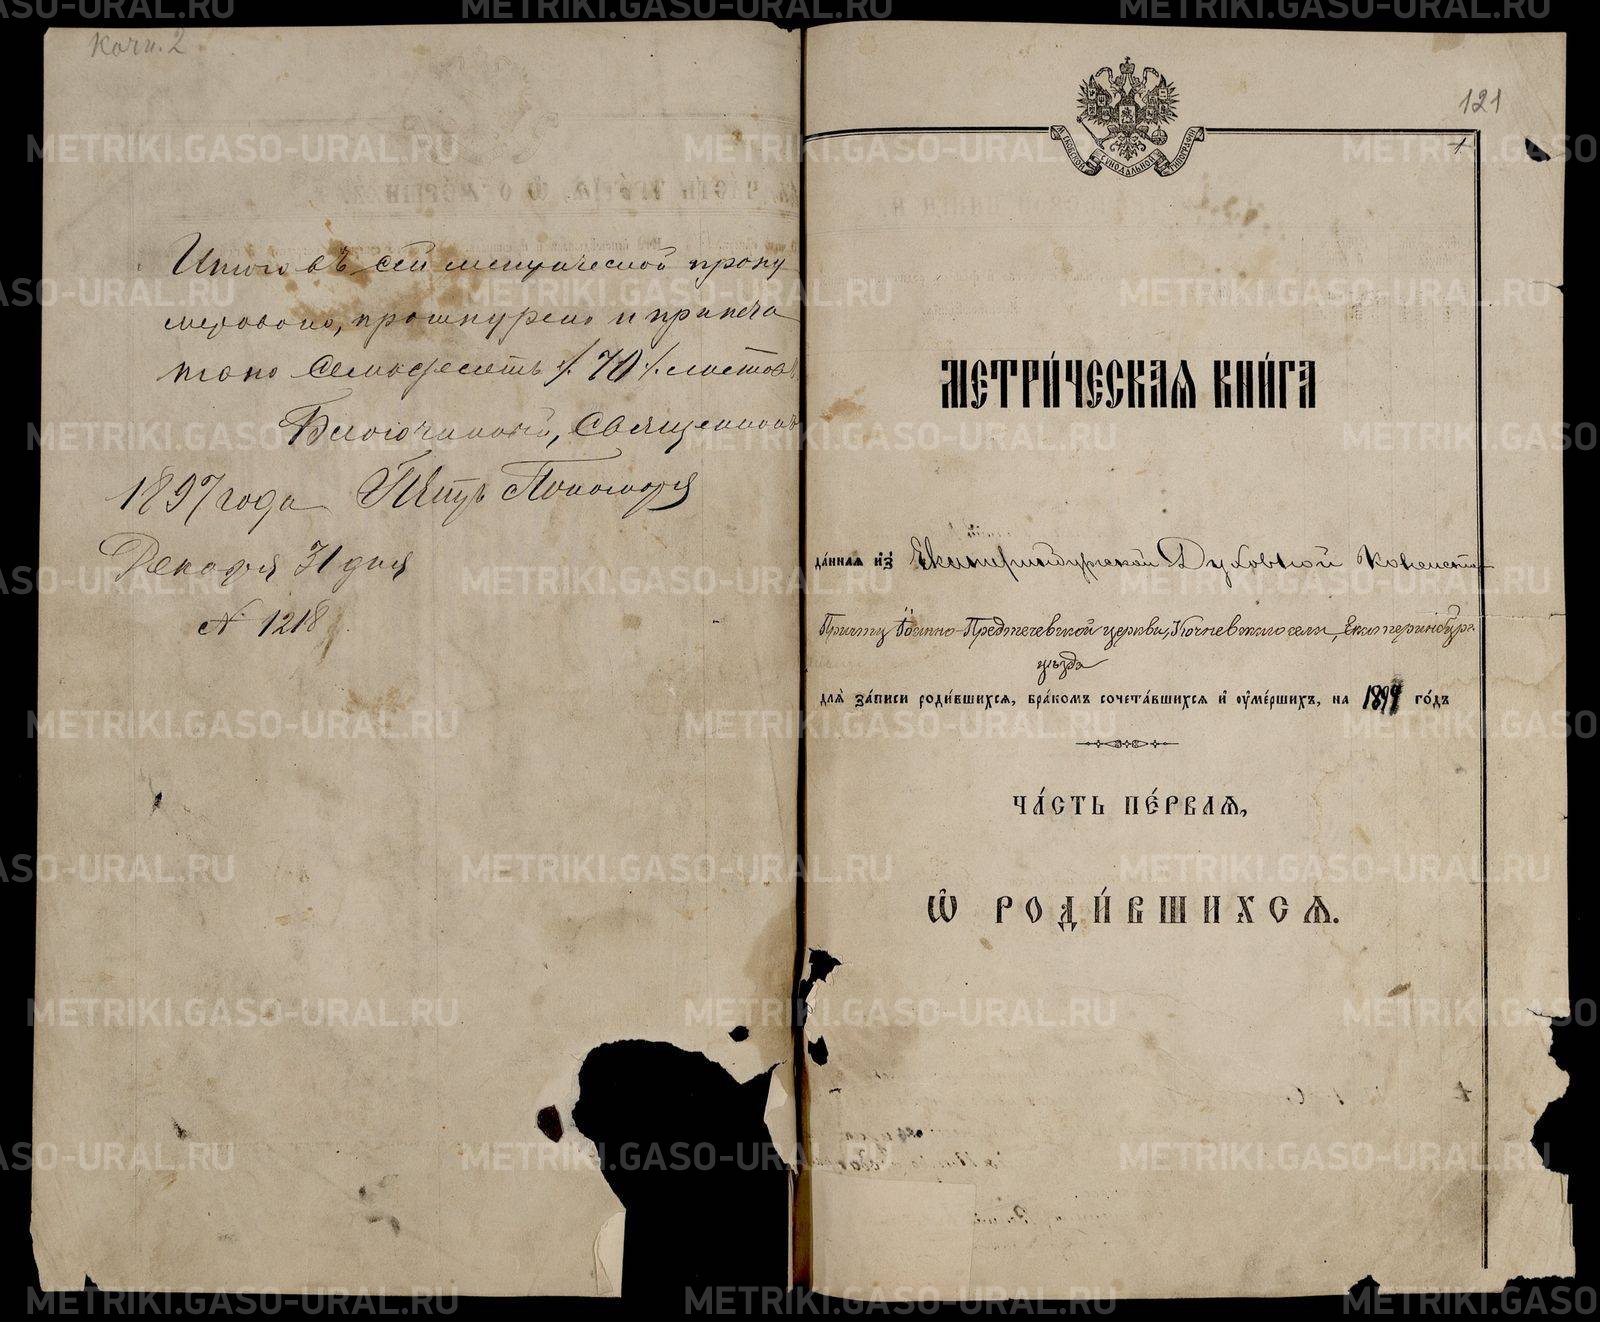 Кочн. 2
Итого въ сей метрической прону
меровано, прошнурено и припеча
тано семьдесятъ /. 70 /. листовъ
Благочинный, Священникъ
1897 года Петръ Пономаревъ
Декабря 31 дня
№ 1218
121
1
МОСКОВСКОЙ СѴНОДАЛЬНОЙ ТИПОГРАФІИ
МЕТРИ́ЧЕСКАѦ КНИ́ГА
да́ннаѧ и҆з̾ Екатеринбургской Духовной Консисторіи
Причту Іоанно-Предтечевской церкви, Кочневскаго села, Екатеринбург.
уѣзда
длѧ̀ за́писи роди́вшихсѧ, бра́комъ сочета́вшихсѧ и҆ ѹ҆ме́ршихъ, на 1897 го́дъ
ЧА́СТЬ ПЕ́РВАѦ,
Ѽ РОДИ́ВШИХСѦ.
METRIKI.GASO-URAL.RU